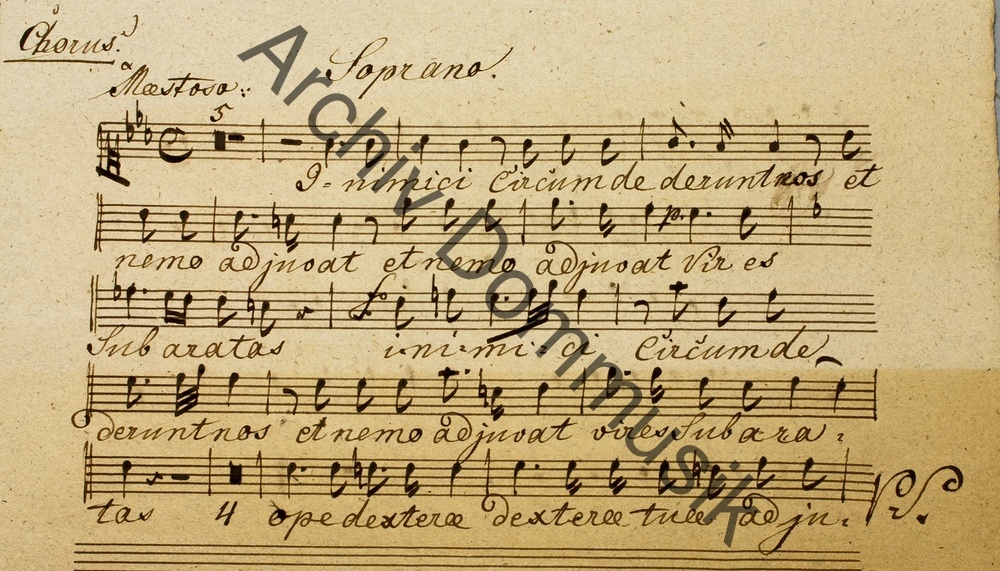 Chorus.
Soprano.
Maestoso:
5
I=nimici Circumdederunt nos et
nemo adjuvat et nemo adjuvat Vir es
p.
Sub aratas i-ni-mi-ci Circumde
f.
deruntnos et nemo adjuvat vires Subara=
tas 4 ope dexterae dexterae tuae adju=
VS.
Archiv Dommusik